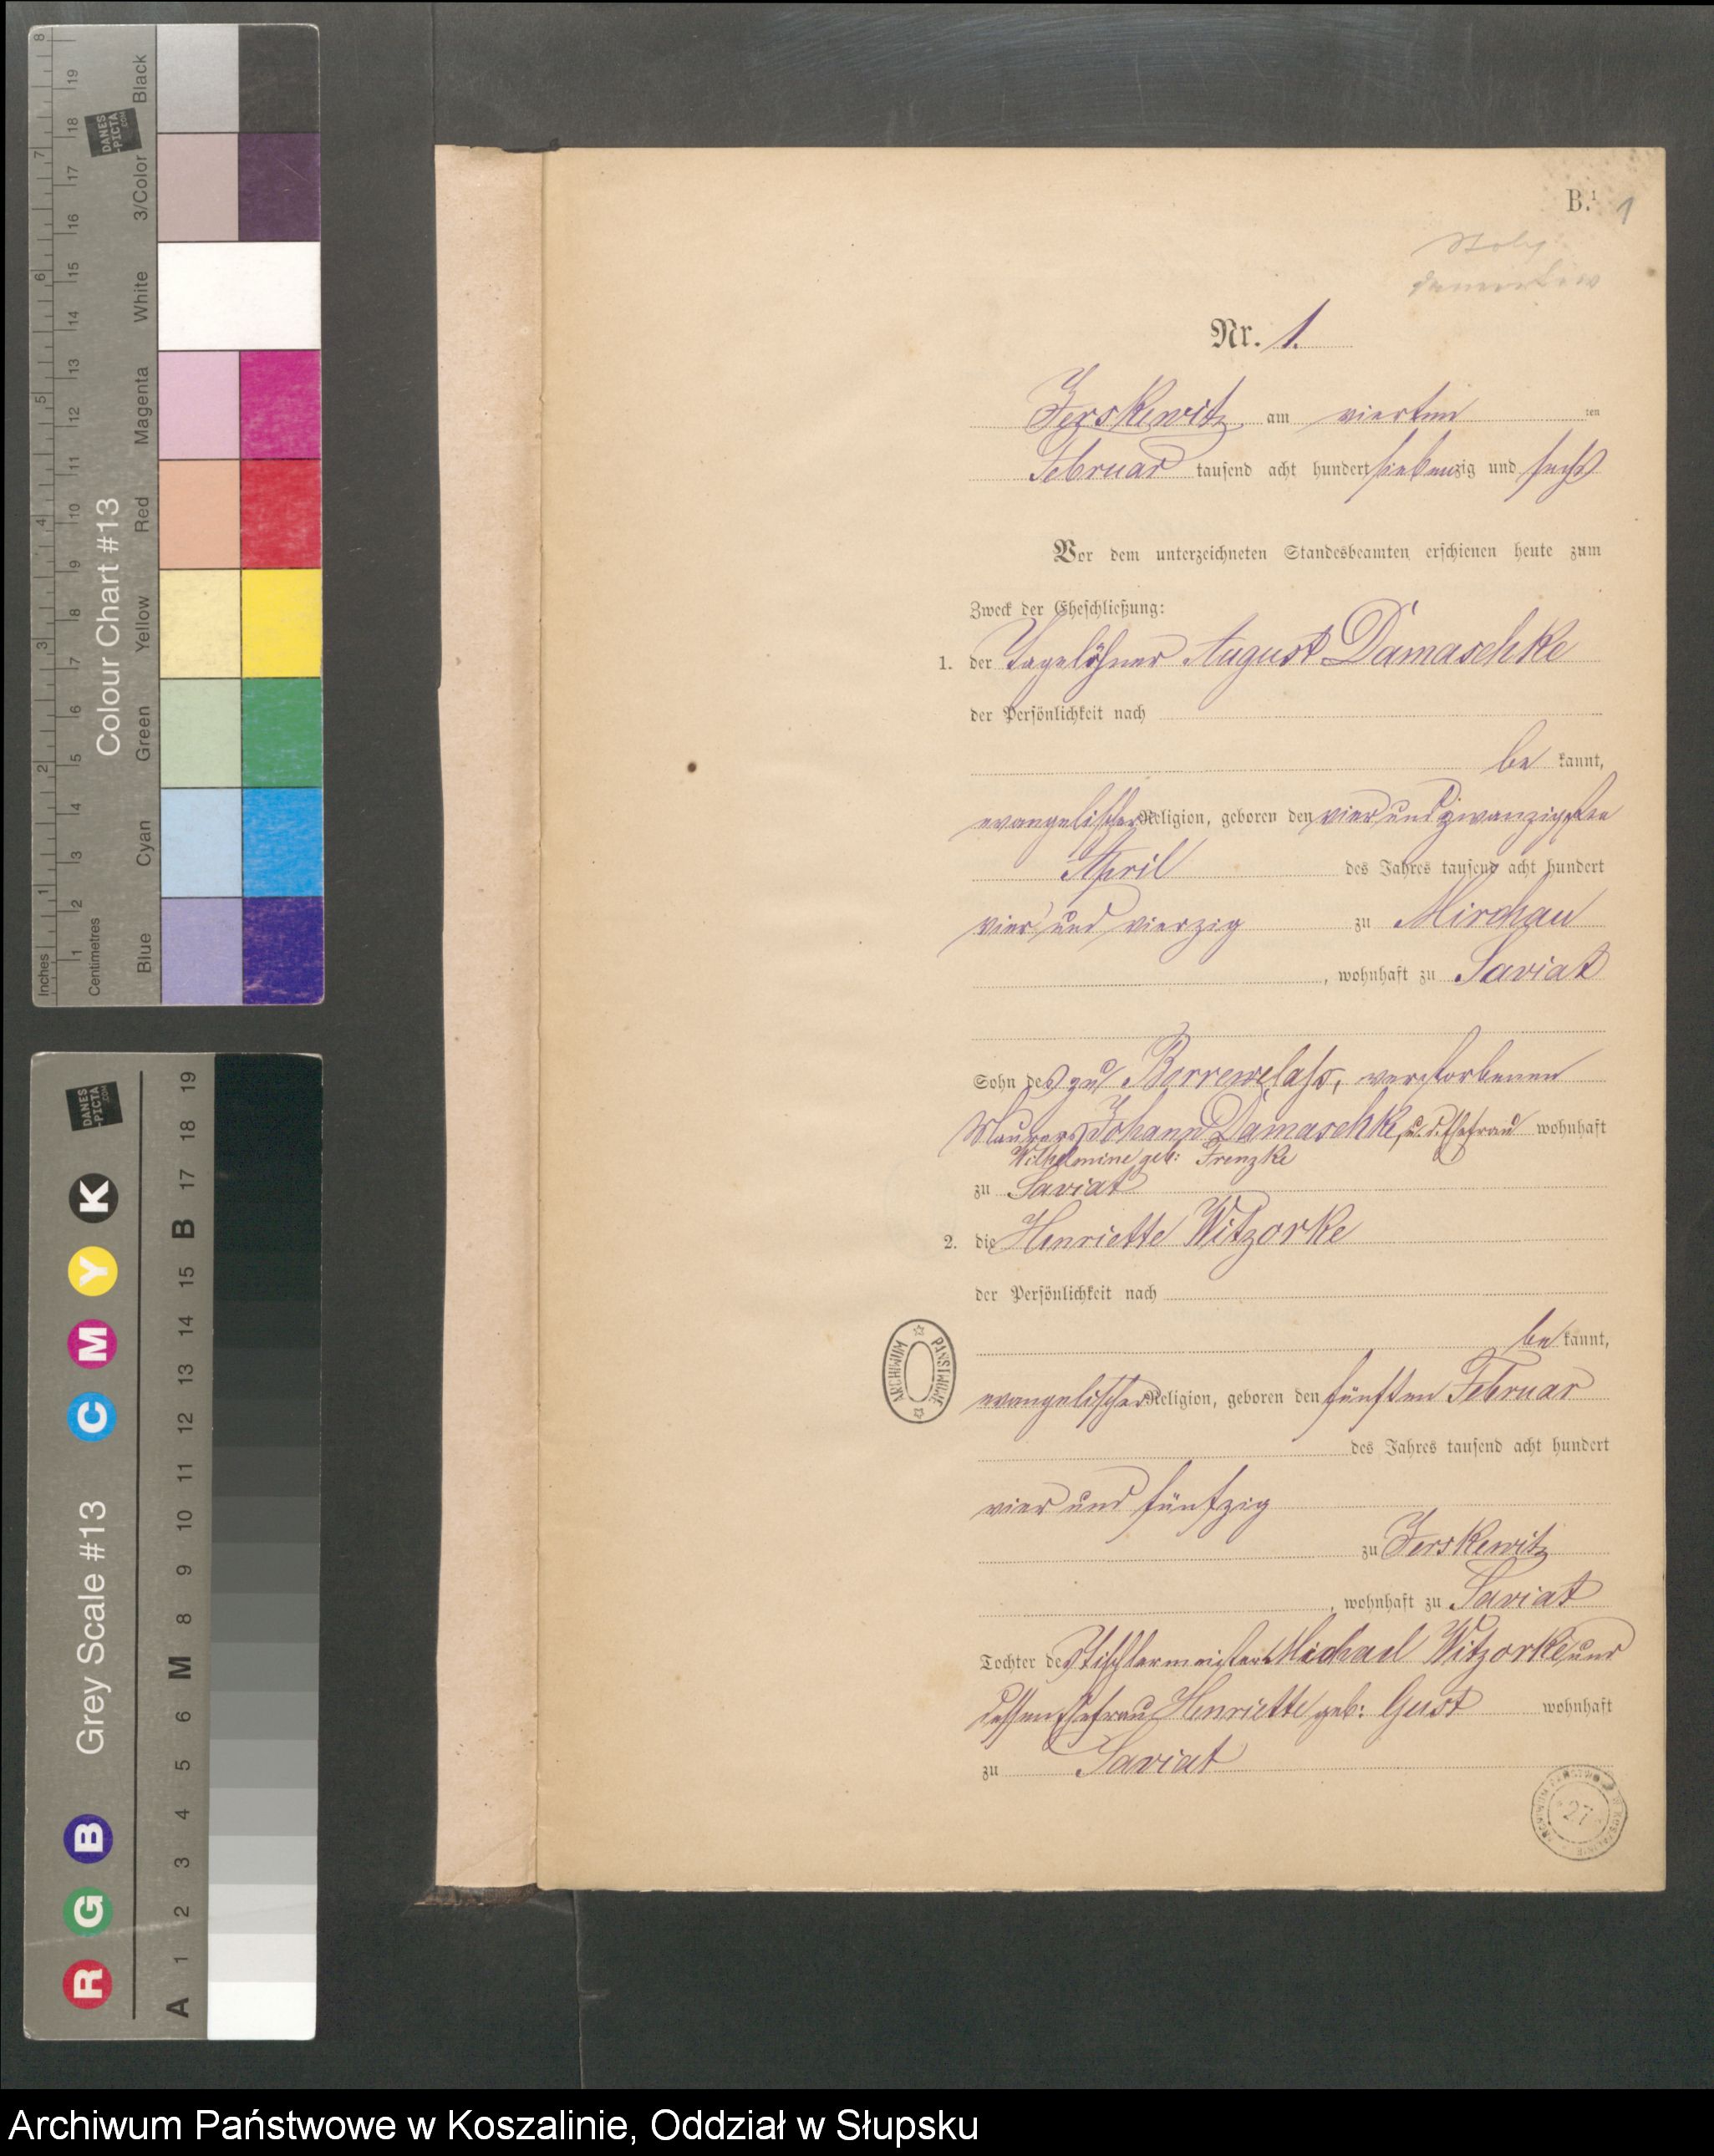 B.1 1
Nr. 1.
Jerskewitz am vierten ten
Februar tausend acht hundert siebenzig und sechs
Vor dem unterzeichneten Standesbeamten erschienen heute zum
Zweck der Eheschließung:
1. der Tagelöhner August Damaschke
der Persönlichkeit nach
be kannt,
evangelischer Religion, geboren den vier und zwanzigsten
April des Jahres tausend acht hundert
vier und vierzig zu Mirchau
, wohnhaft zu Saviat
Sohn des zu Borrewelass, verstorbenen
Maurers Johann Damaschke, u. d. Ehefrau wohnhaft
Wilhelmine geb: Frenzke
zu Saviat
2. die Henriette Witzorke
der Persönlichkeit nach
be kannt,
evangelischer Religion, geboren den fünften Februar
des Jahres tausend acht hundert
vier und fünfzig
zu Jerskewitz
, wohnhaft zu Saviat
Tochter des Tischlermeister Michael Witzorke und
dessen Ehefrau Henriette geb: Geist wohnhaft
zu Saviat
ARCHIWUM PAŃSTWOWE
27
Inches 1 2 3 4 5 6 7 8
Centimetres 1 2 3 4 5 6 7 8 9 10 11 12 13 14 15 16 17 18 19
DANES-PICTA.COM
Colour Chart #13
Blue Cyan Green Yellow Red Magenta White 3/Color Black
DANES-PICTA.COM
Grey Scale #13
R G B C M Y K
A 1 2 3 4 5 6 M 8 9 10 11 12 13 14 15 B 17 18 19
Archiwum Państwowe w Koszalinie, Oddział w Słupsku